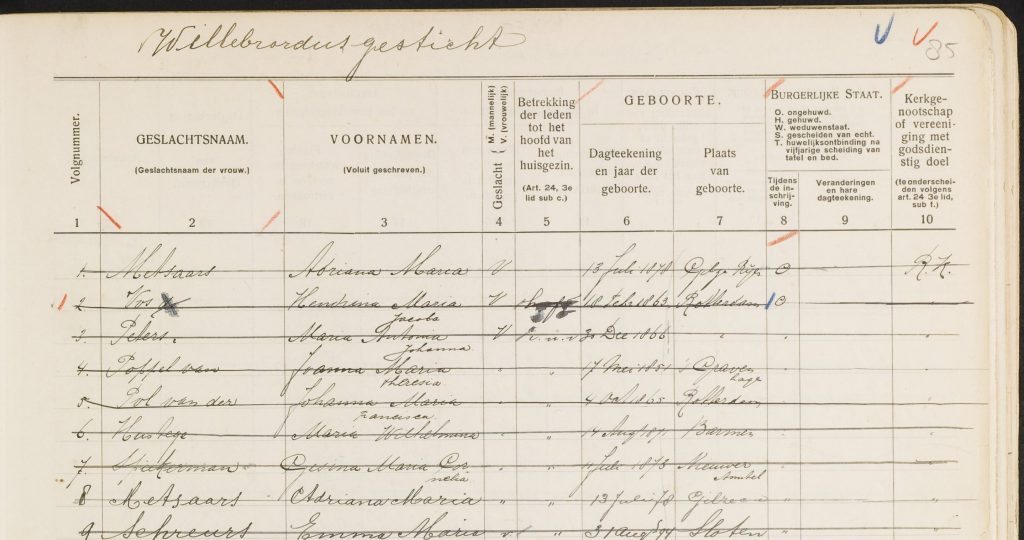 Willebrordusgesticht
85
Volgnummer.
GESLACHTSNAAM.
(Geslachtsnaam der vrouw.)
VOORNAMEN.
(Voluit geschreven.)
Geslacht { M. (mannelijk) V. (vrouwelijk)
Betrekking der leden tot het hoofd van het huisgezin.
(Art. 24, 3e lid sub c.)
GEBOORTE.
Dagteekening en jaar der geboorte.
Plaats van geboorte.
BURGERLIJKE STAAT.
O. ongehuwd.
H. gehuwd.
W. weduwenstaat.
S. gescheiden van echt.
T. huwelijksontbinding na vijfjarige scheiding van tafel en bed.
Tijdens de in- schrij- ving.
Veranderingen en hare dagteekening.
Kerkge- nootschap of vereeni- ging met godsdien- stig doel
(te onderschei- den volgens art. 24 3e lid, sub f.)
1 2 3 4 5 6 7 8 9 10
1. Metsaars Adriana Maria V 13 Juli 1878 O R.K.
2. Vos Hendrina Maria V 18 Febr 1863 Rotterdam O "
Jacoba
3 Peters Maria Antonia V 30 Dec 1866 " " "
Johanna
4. Poppel van Joanna Maria " " 17 Mei 1851 's Graven " "
Theresia hage
5. Pol van der Johanna Maria " " 4 Oct 1865 Rotterdam " "
Francisca
6. Maria Wilhelmina " " 14 Aug 1871 Barmen " "
7. Gesina Maria Cor " " Juli 1873 Nieuwer " "
nelia Amstel
8 Metsaars Adriana Maria " " 13 Juli 78 " "
9 Schreurs Emma Maria v " 31 Aug Sloten " "